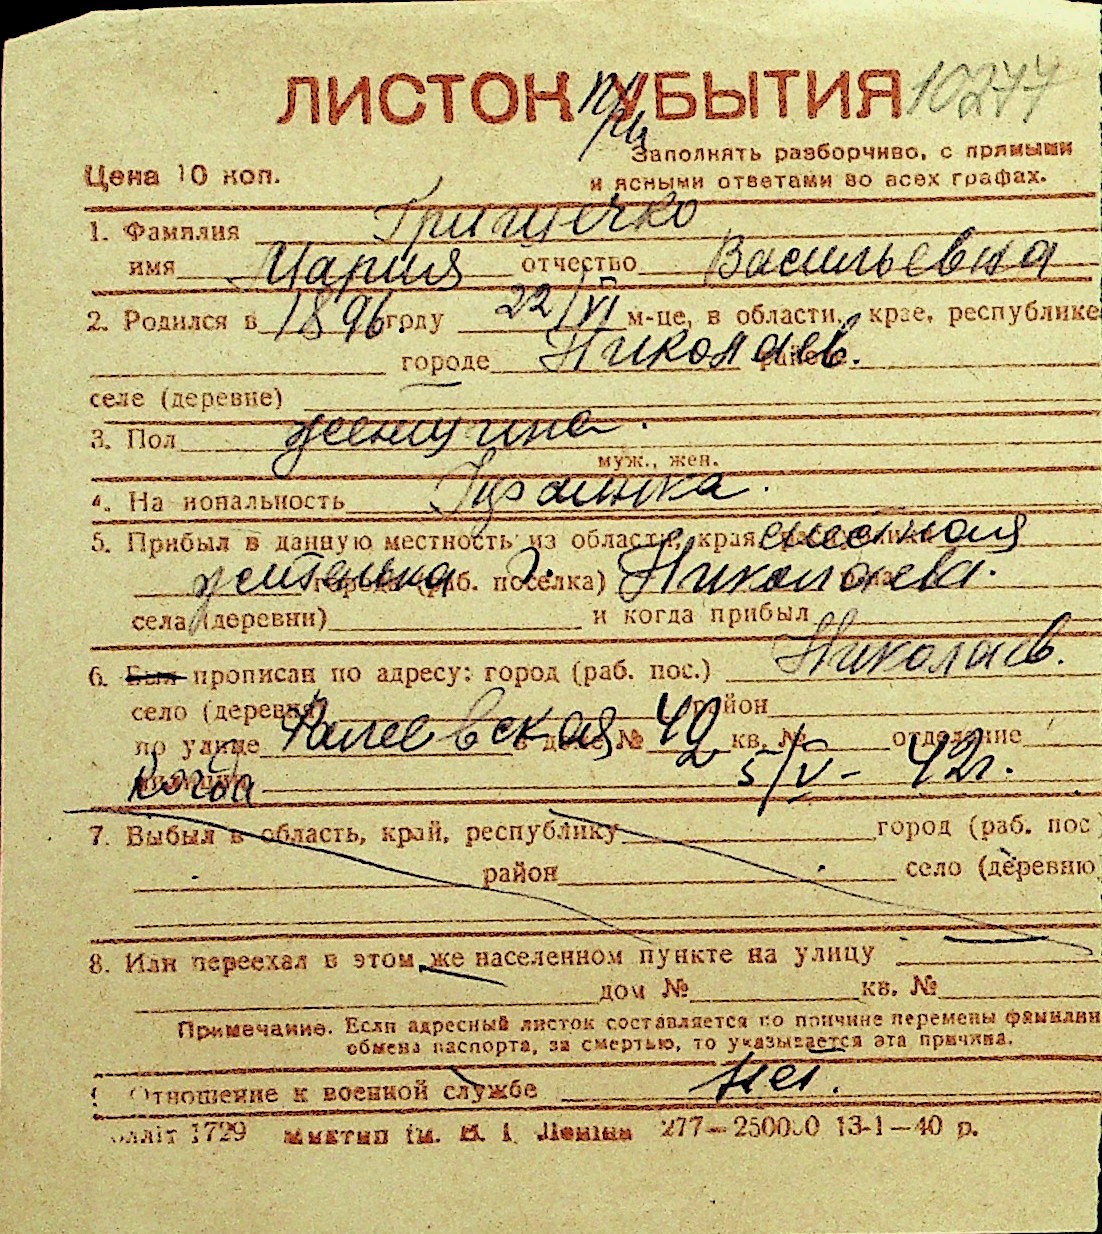 ЛИСТОК УБЫТИЯ 10277
Заполнять разборчиво, с прямыми
Цена 10 коп. и ясными ответами во всех графах.
1. Фамилия Грищечко
имя Мария отчество Васильевна
2. Родился в 1896 году 22/VI м-це, в области, крае, республике
городе Николаев.
селе (деревне)
3. Пол женщина.
муж., жен.
4. На иональность
5. Прибыл в данную местность из области, края местная
жителька г. города (раб. поселка) Николаева.
села (деревни) и когда прибыл
6. Был прописан по адресу: город (раб. пос.) Николаев.
село (деревня) район
по улице Фалеевская в доме № 42 кв. № отделение
Когда 5/V - 42г.
7. Выбыл в область, край, республику город (раб. пос
район село (деревню
8. Или переехал в этом же населенном пункте на улицу
дом № кв. №
Примечание. Если адресный листок составляется по причине перемены фамилии
обмена паспорта, за смертью, то указывается эта причина.
Отношение к военной службе нет.
1729 ім. В. І. Леніна 277—250000 13-1—40 р.